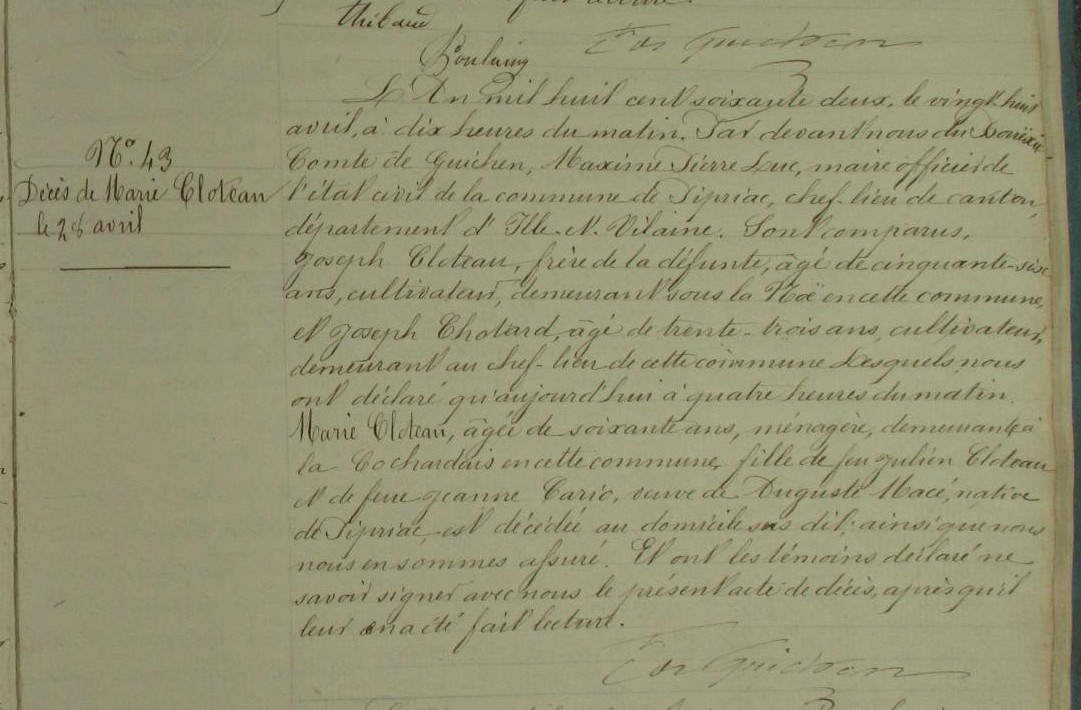 fait lecture.
Thibaud
Boulting
Cte de Guichen
N° 43
Décès de Marie Cloteau
le 28 avril
L'An mil huit cent soixante deux, le vingt-huit
avril, à dix heures du matin. Par devant nous du Bouëxic
Comte de Guichen, Maxime Pierre Luc, maire officier de
l'état civil de la commune de Pipriac, chef-lieu de canton,
département d'Ille-et-Vilaine. Sont comparus,
Joseph Cloteau, frère de la défunte, âgé de cinquante-six
ans, cultivateur, demeurant sous la Noë en cette commune,
et Joseph Chotard, âgé de trente-trois ans, cultivateur,
demeurant au chef-lieu de cette commune Lesquels nous
ont déclaré qu'aujourd'hui à quatre heures du matin.
Marie Cloteau, âgée de soixante ans, ménagère, demeurant à
la Cochardais en cette commune, fille de feu Julien Cloteau
et de feue Jeanne Cario, veuve de Auguste Macé, native
de Pipriac, est décédée au domicile sus dit; ainsi que nous
nous en sommes assuré. Et ont les témoins déclaré ne
savoir signer avec nous le présent acte de décès, après qu'il
leur en a été fait lecture.
Cte de Guichen